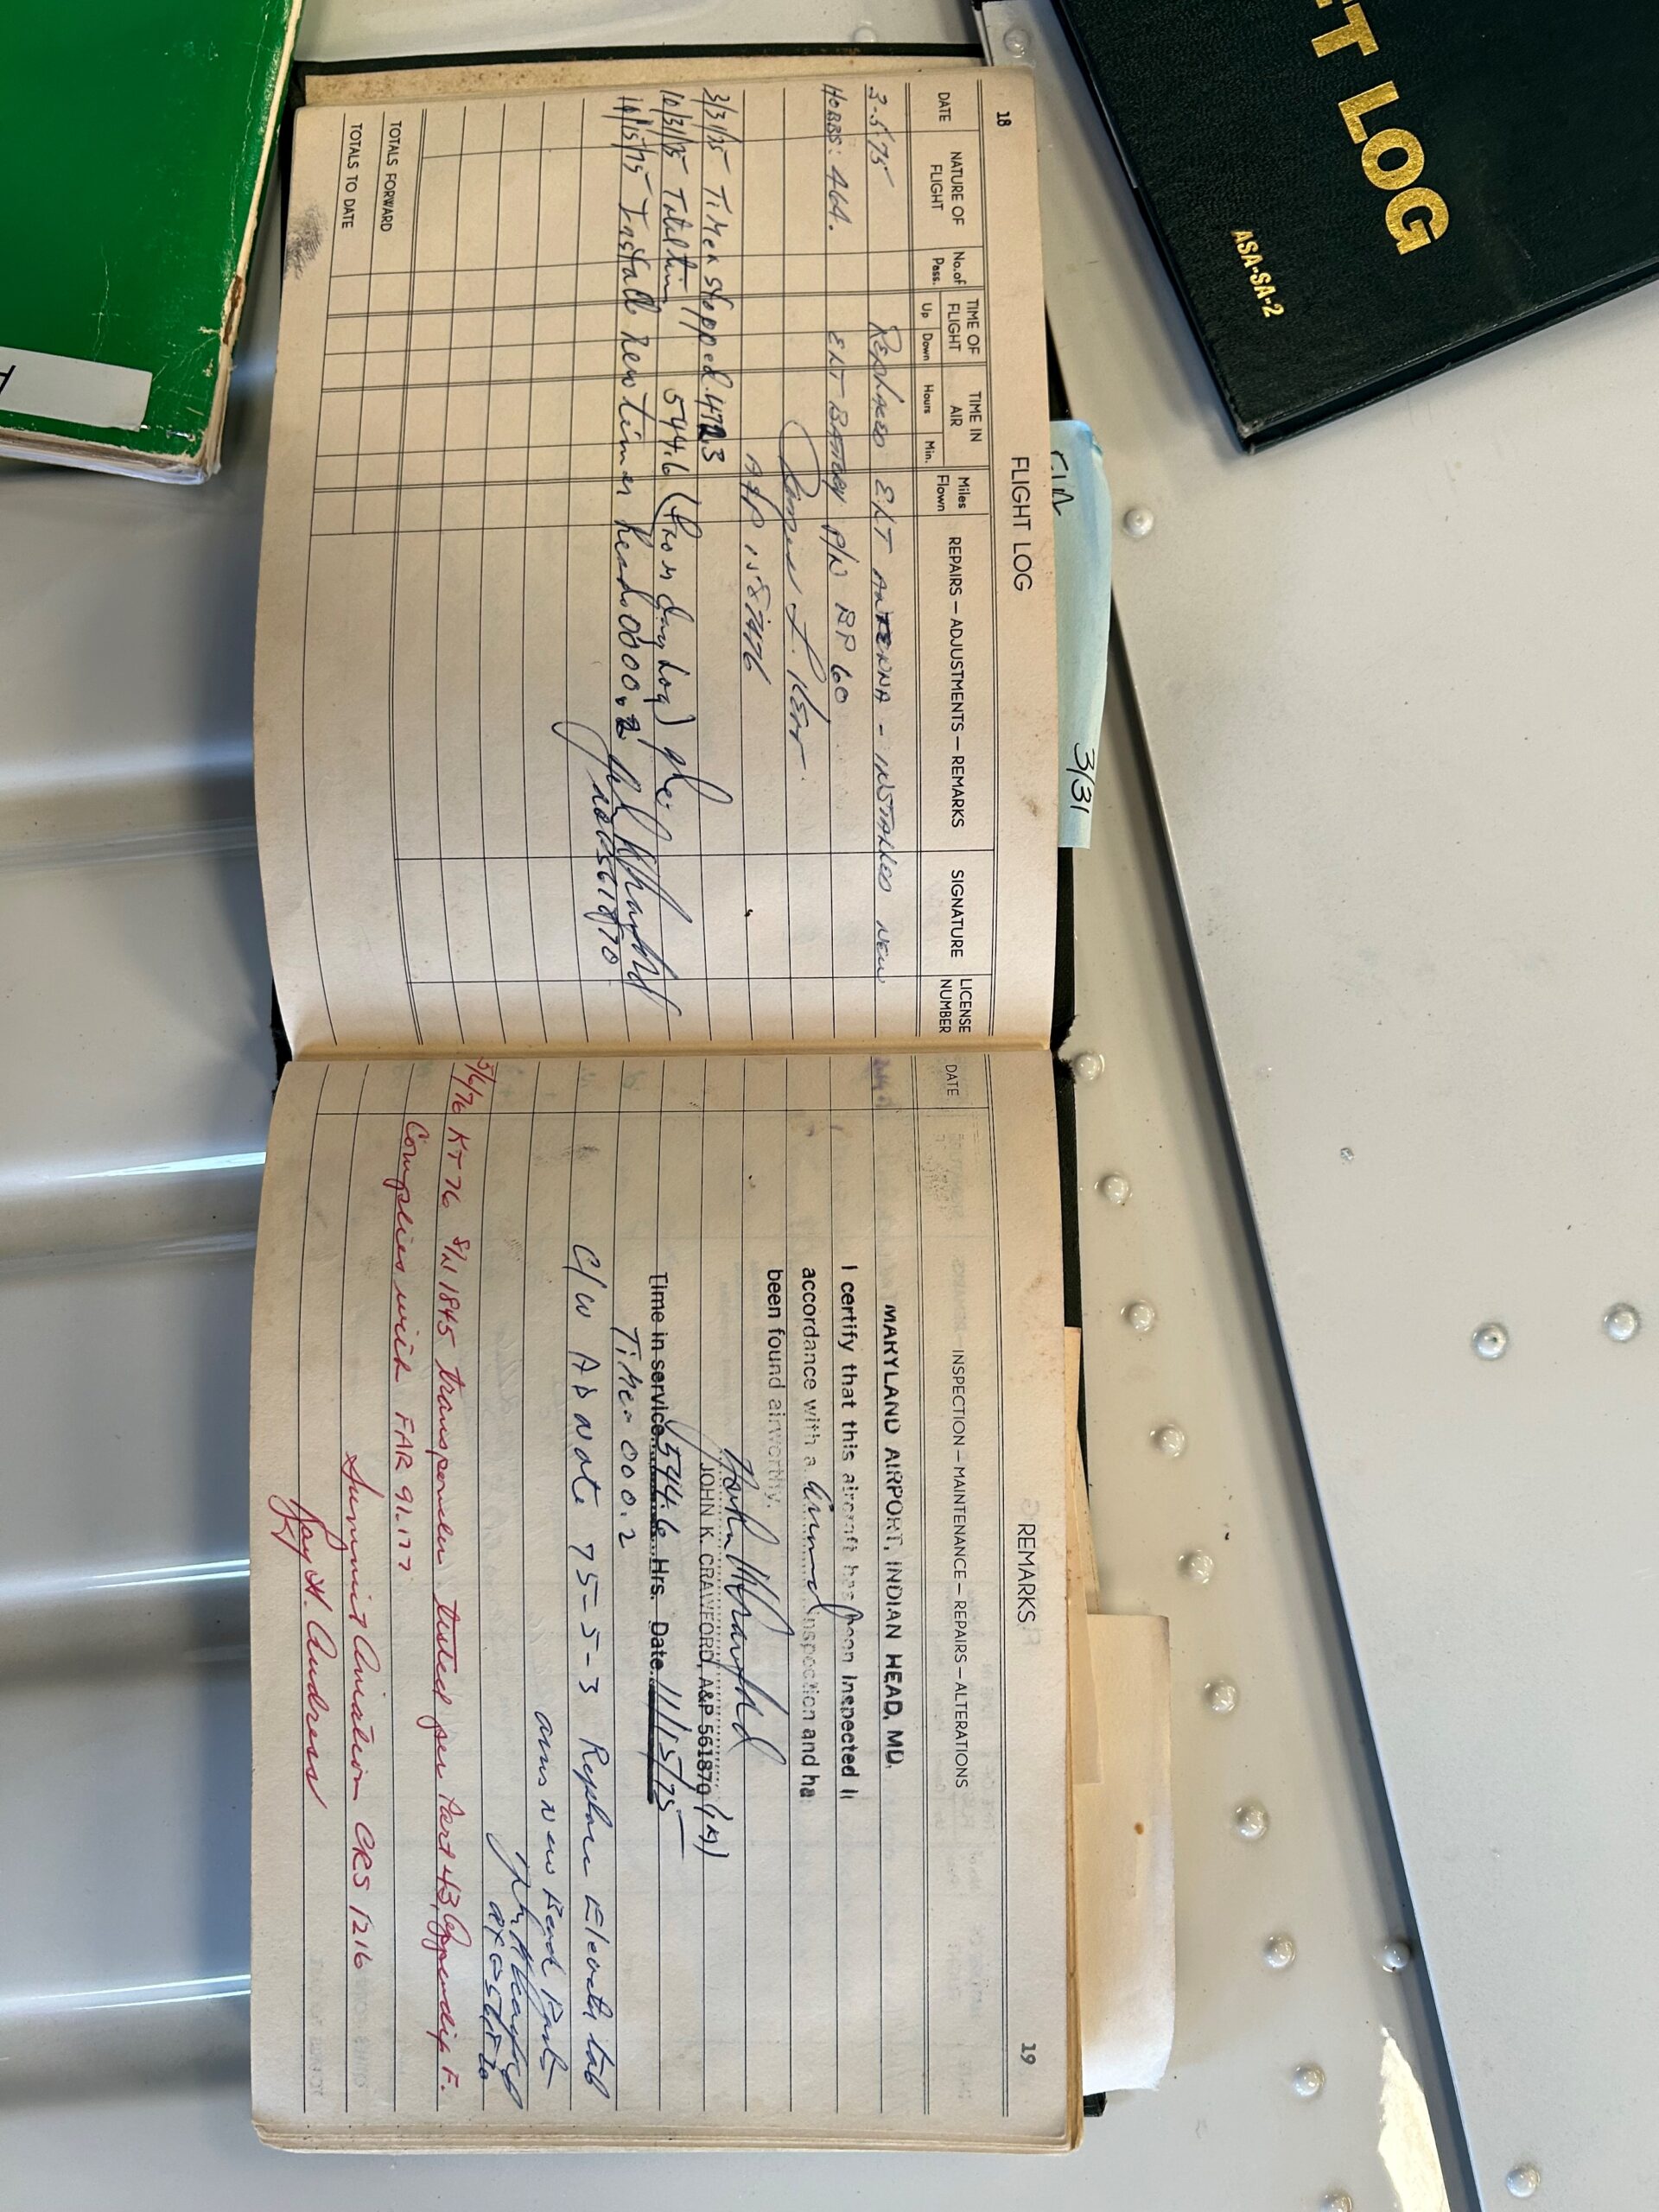 T LOG
ASA-SA-2
3/31
18
FLIGHT LOG
DATE
NATURE OF FLIGHT
No. of Pass.
TIME OF FLIGHT
Up
Down
TIME IN AIR
Hours
Min.
Miles Flown
REPAIRS — ADJUSTMENTS — REMARKS
SIGNATURE
LICENSE NUMBER
3-5-75 Replaced ELT ANTENNA - INSTALLED NEW
HOBBS: 464. ELT BATTERY P/N BP 60
L. Kerr
A&P 1587476
3/3/75 Timer stopped 472.3
10/31/75 Total time 544.6 (from day log)
11/15/75 Install new timer head. 0000.2
TOTALS FORWARD
TOTALS TO DATE
REMARKS
19
DATE
INSPECTION — MAINTENANCE — REPAIRS — ALTERATIONS
MARYLAND AIRPORT, INDIAN HEAD, MD.
I certify that this aircraft has been inspected i
accordance with a Annual inspection and ha
been found airworthy.
JOHN K. CRAWFORD, A&P 561870
Time in service 544.6 Hrs. Date 11/15/75
Timer 000.2
C/W AD note 75-5-3 Replace Elevator tab
arms new
5/6/76 KT76 S/N 1845 transponder tested per Part 43, Appendix F.
Complies with FAR 91.177
Summit Aviation CRS 1216
Ray H. Andress